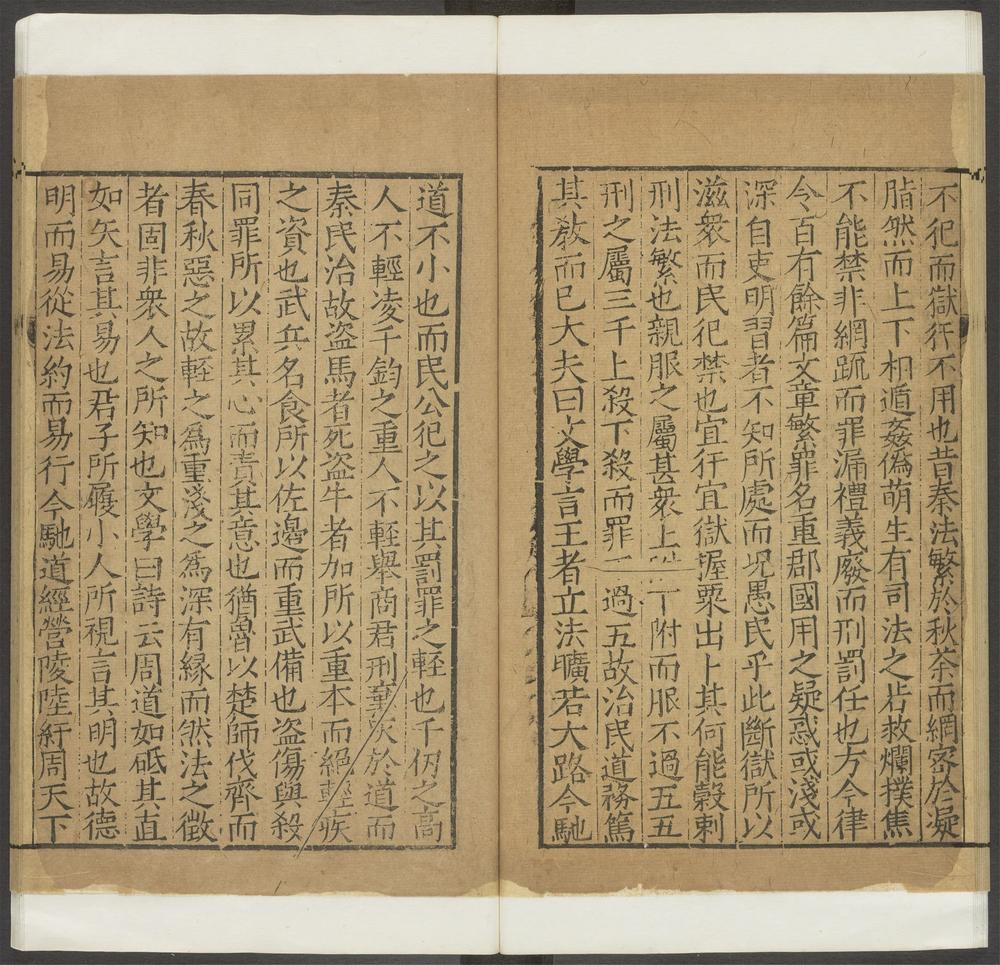 不犯而獄犴不用也昔秦法繁於秋荼而網密於凝
脂然而上下相遁姦偽萌生有司法之若救爛撲焦
不能禁非網踈而罪漏禮義廢而刑罰任也方今律
令百有餘篇文章繁罪名重郡國用之疑惑或淺或
深自吏明習者不知所處而况愚民乎此斷獄所以
滋衆而民犯禁也宜犴宜獄握粟出卜其何能穀剌
刑法繁也親服之屬甚衆上附而服不過五五
刑之屬三千上殺下殺而罪過五故治民道務篤
其教而已大夫曰文學言王者立法曠若大路今馳
道不小也而民公犯之以其罰罪之輕也千仞之高
人不輕凌千鈞之重人不輕舉商君刑棄灰於道而
秦民治故盗馬者死盗牛者加所以重本而絕輕疾
之資也武兵名食所以佐邊而重武備也盗傷與殺
同罪所以累其心而責其意也猶魯以楚師伐齊而
春秋惡之故輕之為重淺之為深有緣而然法之徵
者固非衆人之所知也文學曰詩云周道如砥其直
如矢言其易也君子所履小人所視言其明也故德
明而易從法約而易行今馳道經營陵陸紆周天下